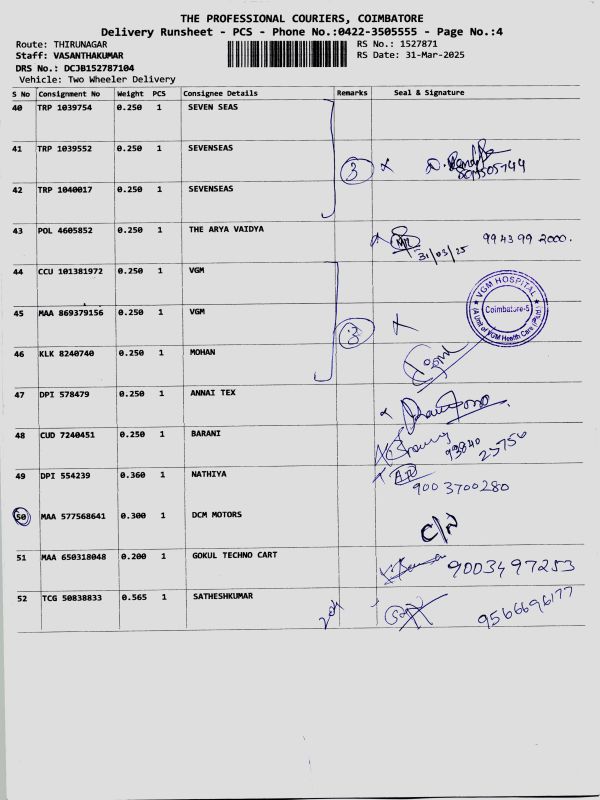 THE PROFESSIONAL COURIERS, COIMBATORE
Delivery Runsheet - PCS - Phone No.:0422-3505555 - Page No.:4
Route: THIRUNAGAR RS No.: 1527871
Staff: VASANTHAKUMAR RS Date: 31-Mar-2025
DRS No.: DCJB152787104
Vehicle: Two Wheeler Delivery
S No Consignment No Weight PCS Consignee Details Remarks Seal & Signature
40 TRP 1039754 0.250 1 SEVEN SEAS
41 TRP 1039552 0.250 1 SEVENSEAS
3
42 TRP 1040017 0.250 1 SEVENSEAS
43 POL 4605852 0.250 1 THE ARYA VAIDYA 31/03/25 99439 92000.
44 CCU 101381972 0.250 1 VGM
VGM HOSPITAL
Coimbatore-5
(A Unit of VGM Health Care (P)Ltd)
45 MAA 869379156 0.250 1 VGM
3
46 KLK 8240740 0.250 1 MOHAN
47 DPI 578479 0.250 1 ANNAI TEX
48 CUD 7240451 0.250 1 BARANI 93840 25756
49 DPI 554239 0.360 1 NATHIYA 9003700280
50 MAA 577568641 0.300 1 DCM MOTORS
51 MAA 650318048 0.200 1 GOKUL TECHNO CART 9003497253
52 TCG 50838833 0.565 1 SATHESHKUMAR 9566696177